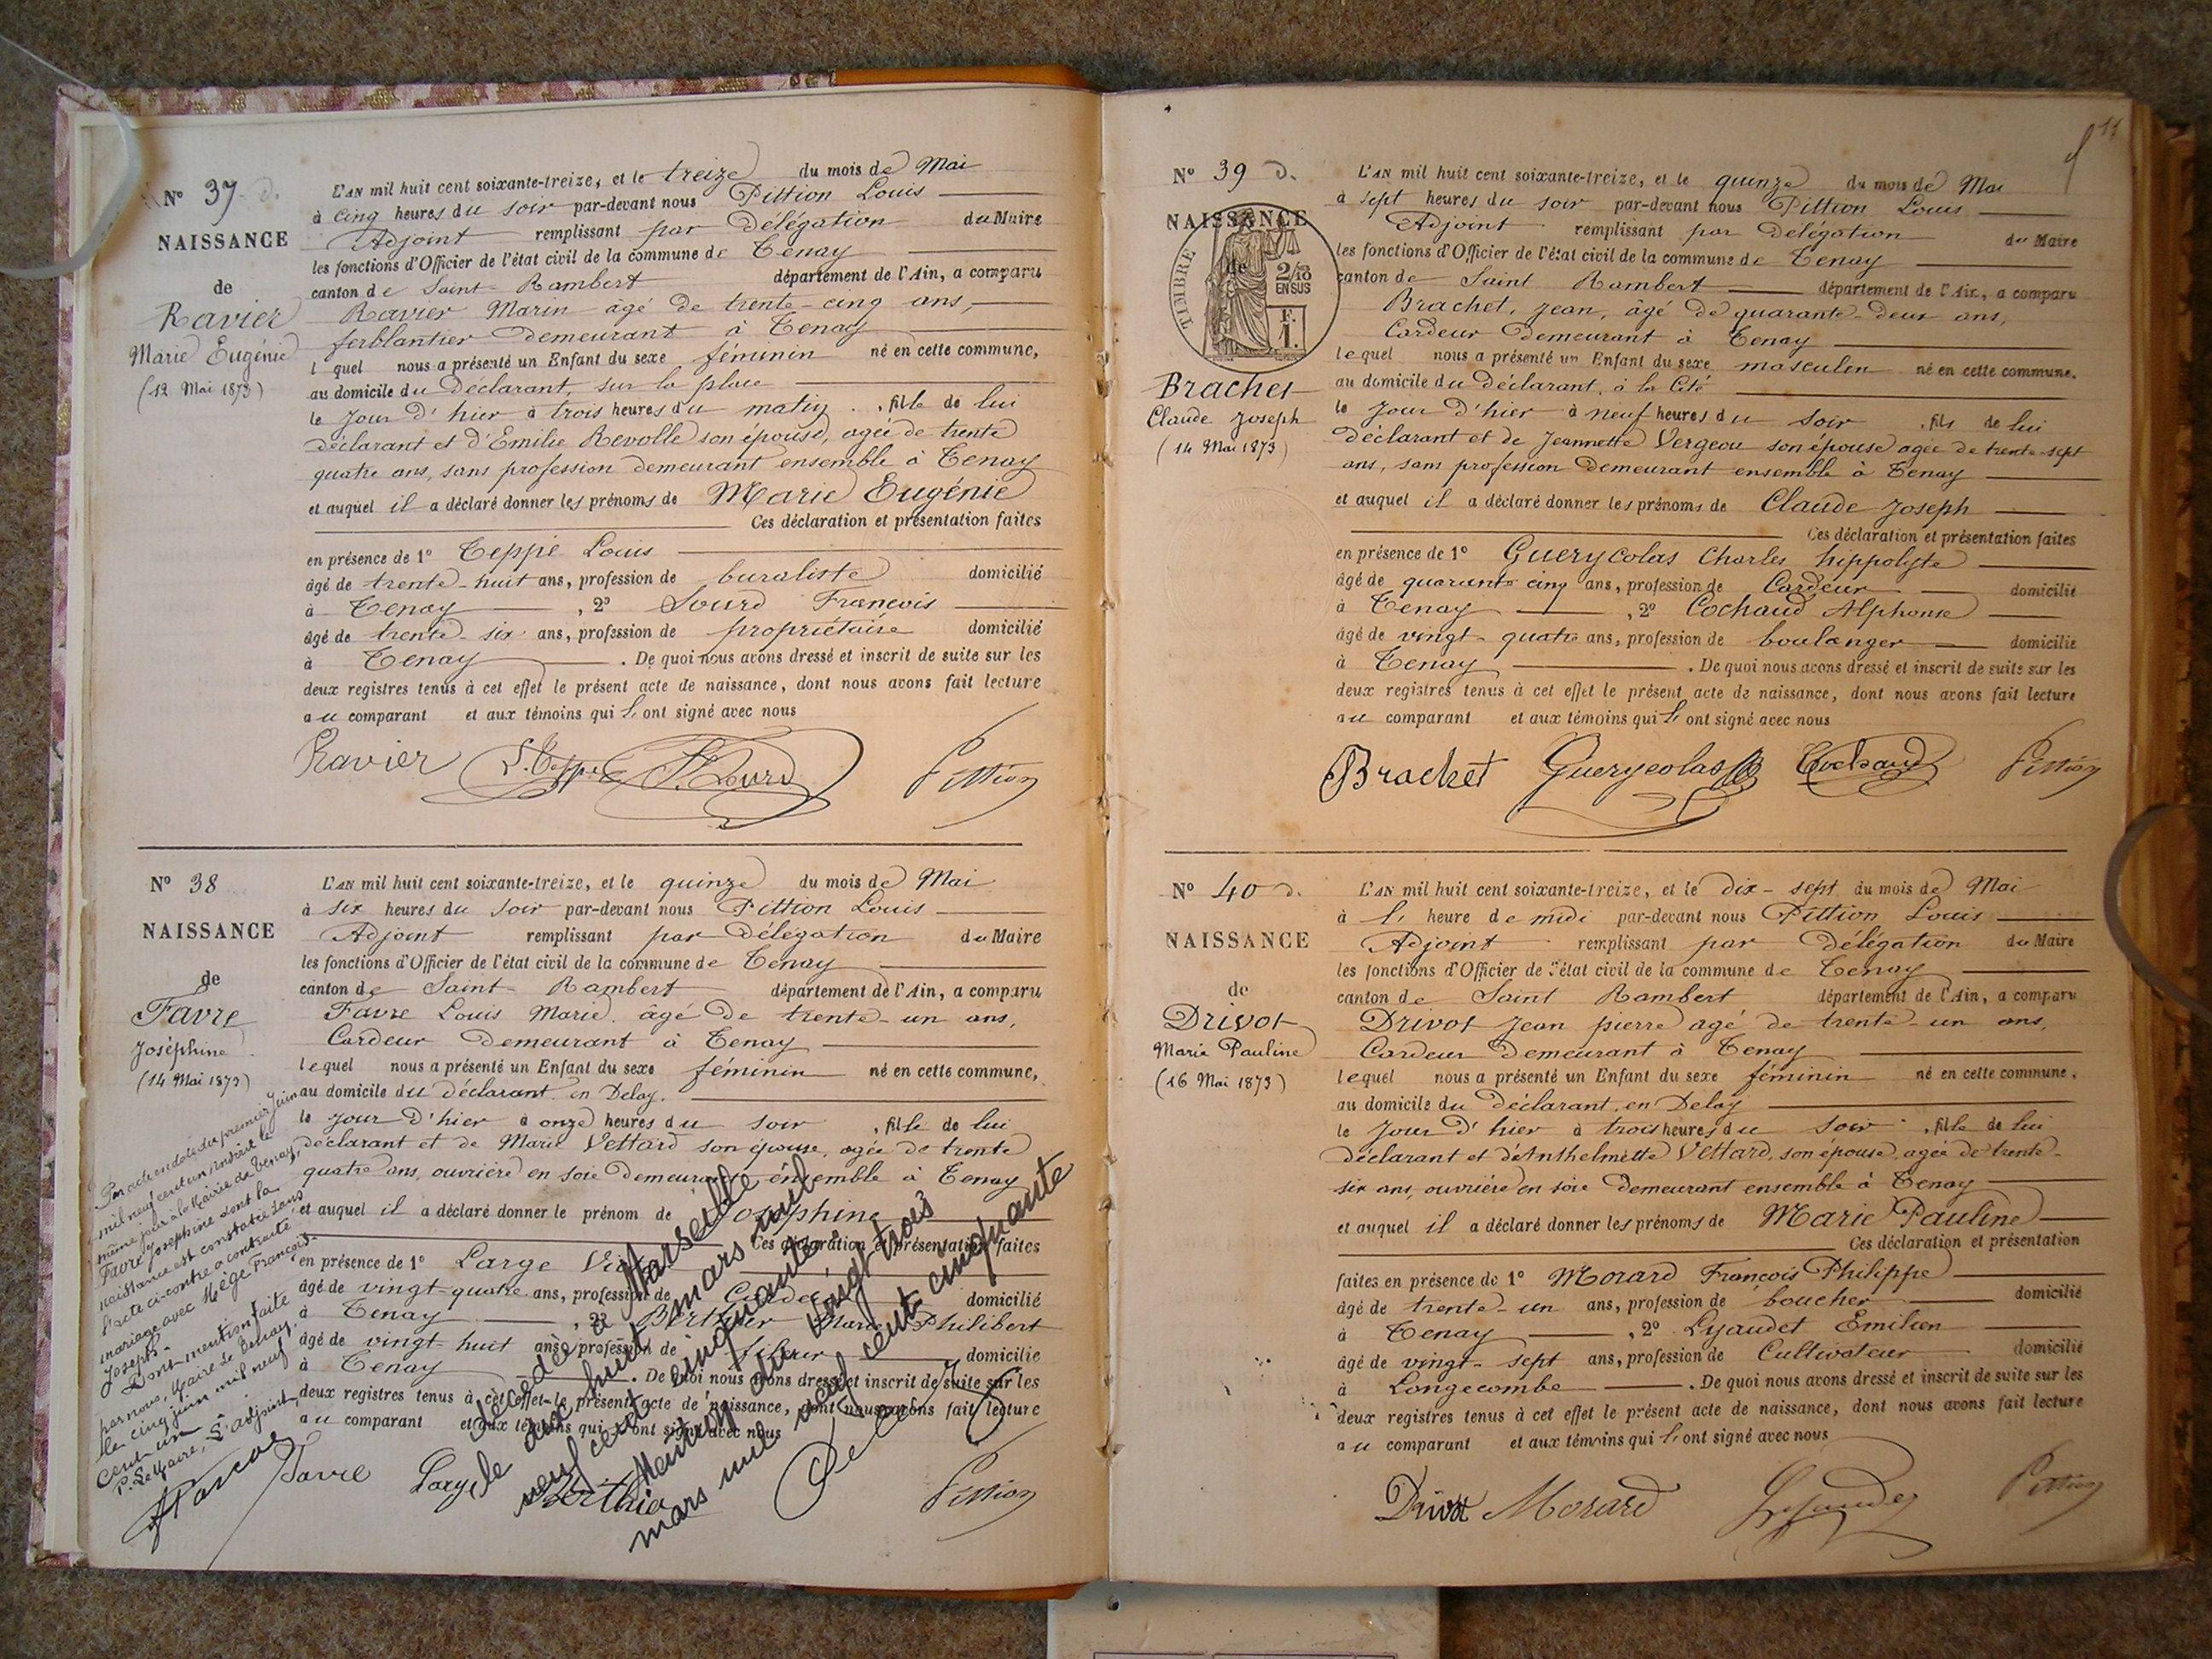 Nº 37 d.
NAISSANCE
de
Ravier
Marie Eugénie
(12 Mai 1873)
L'AN mil huit cent soixante-treize, et le treize du mois de Mai
à cinq heures du soir par-devant nous Pittion Louis
Adjoint remplissant par Délégation du Maire
les fonctions d'Officier de l'état civil de la commune de Tenay
canton de Saint-Rambert département de l'Ain, a comparu
Ravier Marin âgé de trente-cinq ans,
ferblantier demeurant à Tenay
l quel nous a présenté un Enfant du sexe féminin né en cette commune,
au domicile du Déclarant, sur la place
le jour d'hier à trois heures du matin, fille de lui
déclarant et d'Emilie Revolle son épouse, agée de trente
quatre ans, sans profession demeurant ensemble à Tenay
et auquel il a déclaré donner les prénoms de Marie Eugénie
Ces déclaration et présentation faites
en présence de 1º Teppe Louis
âgé de trente-huit ans, profession de buraliste domicilié
à Tenay, 2º Sourd Francois
âgé de trente-six ans, profession de propriétaire domicilié
à Tenay. De quoi nous avons dressé et inscrit de suite sur les
deux registres tenus à cet effet le présent acte de naissance, dont nous avons fait lecture
au comparant et aux témoins qui l'ont signé avec nous
Ravier L. Teppe F. Sourd Pittion
Nº 38
NAISSANCE
de
Favre
Joséphine
(14 Mai 1873)
L'AN mil huit cent soixante-treize, et le quinze du mois de Mai
à six heures du soir par-devant nous Pittion Louis
Adjoint remplissant par Délégation du Maire
les fonctions d'Officier de l'état civil de la commune de Tenay
canton de Saint-Rambert département de l'Ain, a comparu
Favre Louis Marie âgé de trente-un ans,
Cardeur demeurant à Tenay
lequel nous a présenté un Enfant du sexe féminin né en cette commune,
au domicile du déclarant en Delay.
le jour d'hier à onze heures du soir, fille de lui
déclarant et de Marie Vettard son épouse, agée de trente
quatre ans, ouvrière en soie demeurant ensemble à Tenay
et auquel il a déclaré donner le prénom de Joséphine
Ces déclaration et présentation faites
en présence de 1º Large
âgé de vingt-quatre ans, profession de Cardeur domicilié
à Tenay, 2º Berthier Marie Philibert
âgé de vingt huit ans, profession de domicilié
à Tenay. De quoi nous avons dressé et inscrit de suite sur les
deux registres tenus à cet effet le présent acte de naissance, dont nous avons fait lecture
au comparant et aux témoins qui l'ont signé avec nous
Favre Large Berthier Pittion
Par acte en date du premier Juin
mil neuf cent un, inscrit le
même jour à la Mairie de Tenay,
Favre Josephine dont la
naissance est constatée dans
l'acte ci-contre a contracté
mariage avec Mège François-
Joseph.-
Dont mention faite
par nous, Maire de Tenay,
le cinq juin mil neuf
cent un
P. Le Maire, L'adjoint,
Décédée à Marseille
le dix huit mars mil
neuf cent cinquante.
Mention du vingt trois
mars mil neuf cent cinquante
Nº 39 d.
NAISSANCE
de
TIMBRE
2/10
EN SUS
F.
1.
Brachet
Claude Joseph
(14 Mai 1873)
11
L'AN mil huit cent soixante-treize, et le quinze du mois de Mai
à sept heures du soir par-devant nous Pittion Louis
Adjoint remplissant par Délégation du Maire
les fonctions d'Officier de l'état civil de la commune de Tenay
canton de Saint Rambert département de l'Ain, a comparu
Brachet, Jean, âgé de quarante-deux ans,
Cardeur demeurant à Tenay
lequel nous a présenté un Enfant du sexe masculin né en cette commune.
au domicile du Déclarant, à la Cité
le jour d'hier à neuf heures du soir, fils de lui
déclarant et de Jeannette Vergeou son épouse agée de trente-sept
ans, sans profession demeurant ensemble à Tenay
et auquel il a déclaré donner les prénoms de Claude Joseph
Ces déclaration et présentation faites
en présence de 1º Guerycolas Charles hippolyte
âgé de quarante cinq ans, profession de Cardeur domicilié
à Tenay, 2º Cochaud Alphonse
âgé de vingt-quatre ans, profession de boulanger domicilié
à Tenay. De quoi nous avons dressé et inscrit de suite sur les
deux registres tenus à cet effet le présent acte de naissance, dont nous avons fait lecture
au comparant et aux témoins qui l'ont signé avec nous
Brachet Guerycolas Cochaud Pittion
Nº 40 d.
NAISSANCE
de
Drivot
Marie Pauline
(16 Mai 1873)
L'AN mil huit cent soixante-treize, et le dix-sept du mois de Mai
à l' heure de midi par-devant nous Pittion Louis
Adjoint remplissant par Délégation du Maire
les fonctions d'Officier de l'état civil de la commune de Tenay
canton de Saint Rambert département de l'Ain, a comparu
Drivot Jean pierre agé de trente-un ans,
Cardeur demeurant à Tenay
lequel nous a présenté un Enfant du sexe féminin né en cette commune.
au domicile du déclarant, en Delay
le jour d'hier à trois heures du soir, fille de lui
déclarant et d'Anthelmette Vettard, son épouse, agée de trente-
six ans, ouvrière en soie demeurant ensemble à Tenay
et auquel il a déclaré donner les prénoms de Marie Pauline
Ces déclaration et présentation
faites en présence de 1º Morard François Philippe
âgé de trente-un ans, profession de boucher domicilié
à Tenay, 2º Lyaudet Emilien
âgé de vingt-sept ans, profession de Cultivateur domicilié
à Longecombe. De quoi nous avons dressé et inscrit de suite sur les
deux registres tenus à cet effet le présent acte de naissance, dont nous avons fait lecture
au comparant et aux témoins qui l'ont signé avec nous
Drivot Morard Lyaudet Pittion